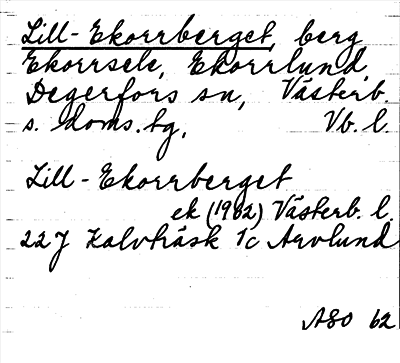 Lill-Ekorrberget, berg
Ekorrsele, Ekorrlund,
Degerfors sn, Västerb.
s. doms. bg, Vb. l.
Lill-Ekorrberget
ek (1962) Västerb. l.
22J Kalvträsk 1c Arvlund
ASO 62